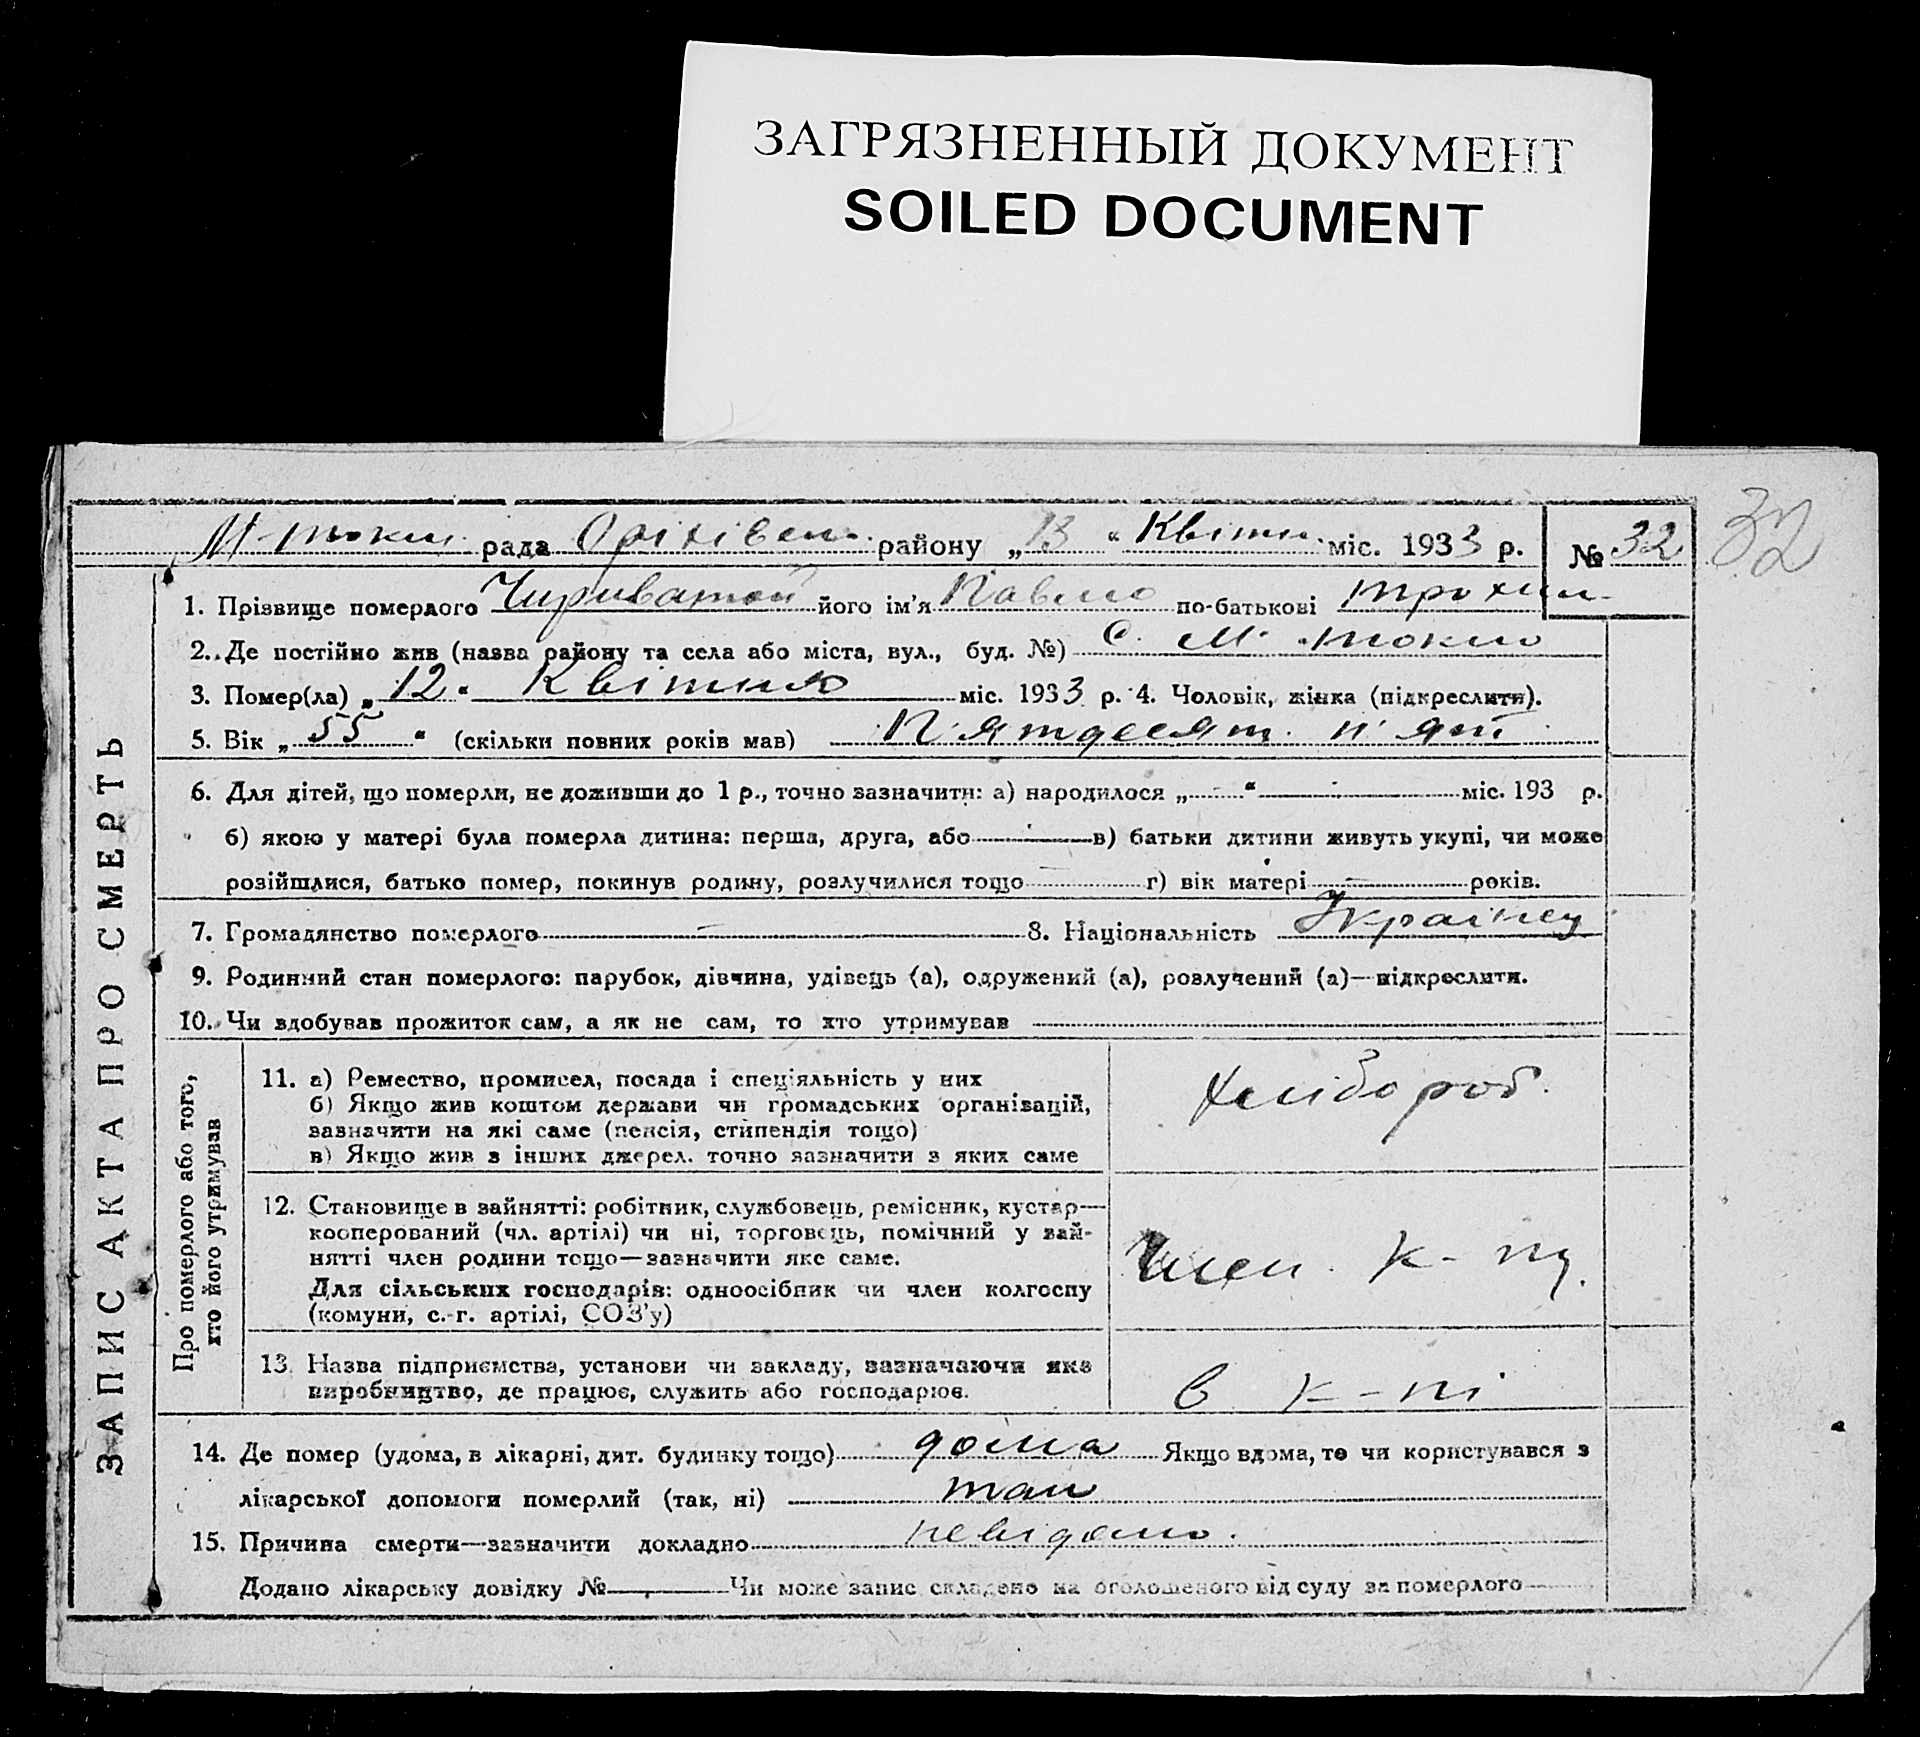 ЗАГРЯЗНЕННЫЙ ДОКУМЕНТ
SOILED DOCUMENT
М-токм. рада Оріхівськ. району „13“ Квітн. міс. 1933 р. № 32 32
1. Прізвище померлого Чириватой його ім'я Павло по-батькові Трохим-
2. Де постійно жив (назва району та села або міста, вул., буд. №) с. М. Токм
3. Помер(ла) „12“ Квітня міс. 1933 р. 4. Чоловік, жінка (підкреслити).
5. Вік „55“ (скільки повних років мав) П'ятдесят п'ят
6. Для дітей, що померли, не доживши до 1 р., точно зазначити: а) народилося „ “ міс. 193 р.
б) якою у матері була померла дитина: перша, друга, або в) батьки дитини живуть укупі, чи може
розійшлися, батько помер, покинув родину, розлучилися тощо г) вік матері років.
7. Громадянство померлого — 8. Національність Українец
9. Родинний стан померлого: парубок, дівчина, удівець (а), одружений (а), розлучений (а)—підкреслити.
10. Чи здобував прожиток сам, а як не сам, то хто утримував
ЗАПИС АКТА ПРО СМЕРТЬ
Про померлого або того,
хто його утримував
11. а) Ремество, промисел, посада і спеціяльність у них
б) Якщо жив коштом держави чи громадських організацій,
зазначити на які саме (пенсія, стипендія тощо)
в) Якщо жив з інших джерел. точно зазначити з яких саме
хлібороб.
12. Становище в зайнятті: робітник, службовець, ремісник, кустар—
кооперований (чл. артілі) чи ні, торговець, помічний у зай-
нятті член родини тощо—зазначити яке саме.
Для сільських господарів: одноосібник чи член колгоспу
(комуни, с.-г. артілі, СОЗ'у)
Член. к-пу.
13. Назва підприємства, установи чи закладу, зазначаючи яке
виробництво, де працює, служить або господарює.
в к-пі
14. Де помер (удома, в лікарні, дит. будинку тощо) дома Якщо вдома, то чи користувався з
лікарської допомоги померлий (так, ні) так
15. Причина смерти—зазначити докладно невідомо.
Додано лікарську довідку № Чи може запис складено на оголошеного від суду за померлого